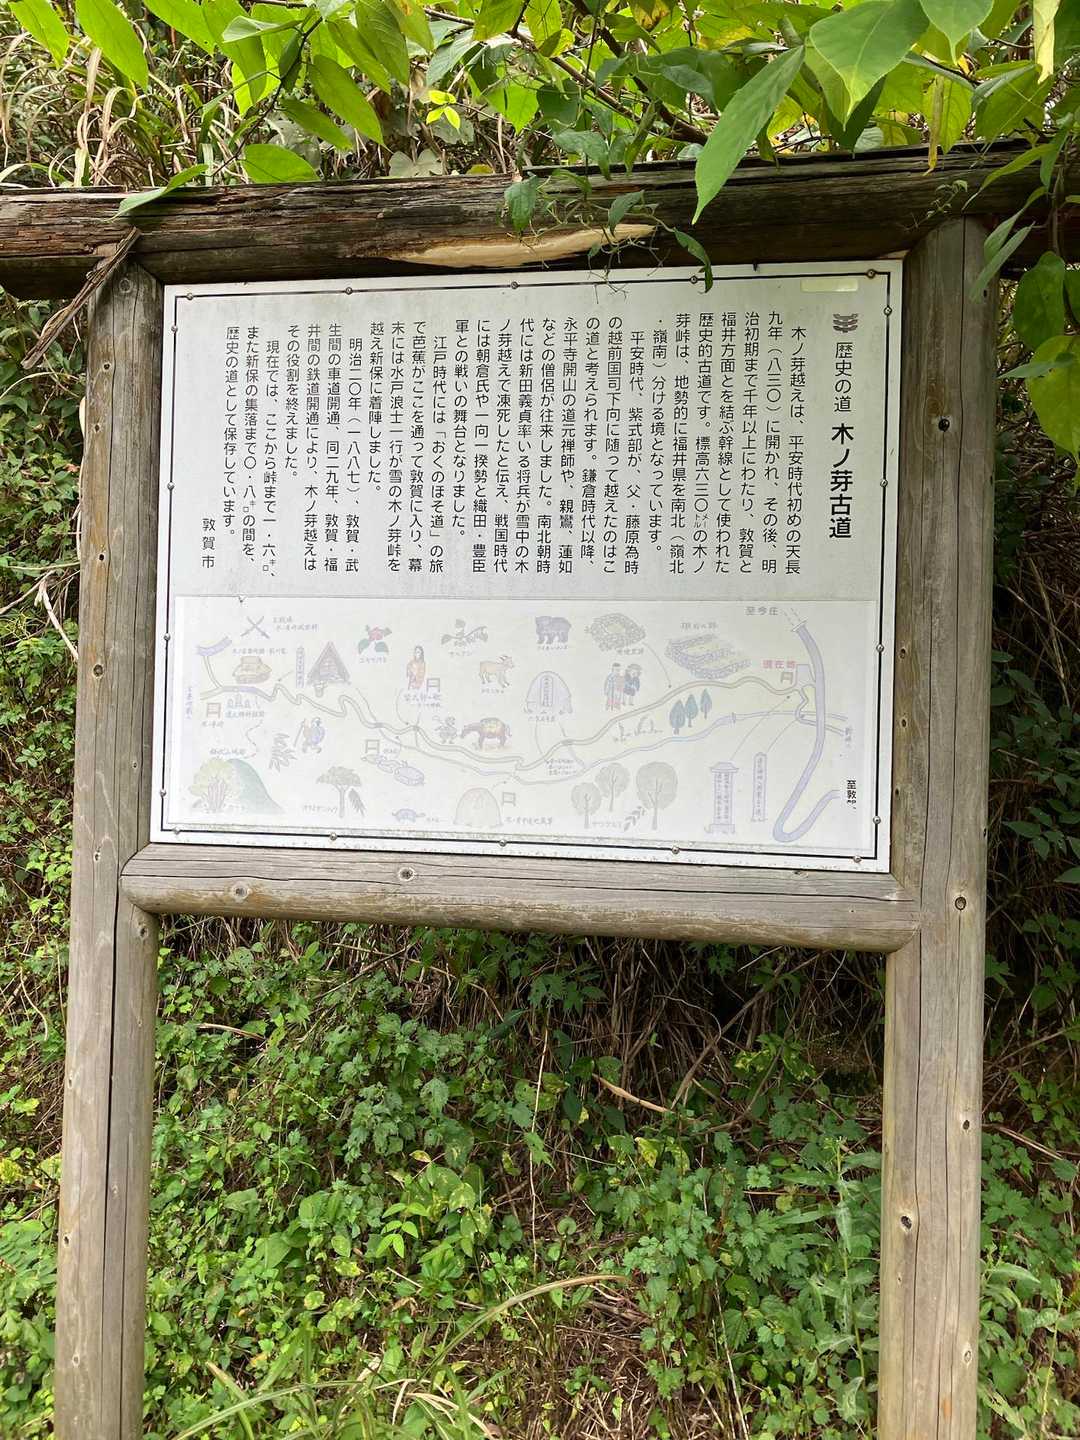 歴史の道 木ノ芽古道
木ノ芽越えは、平安時代初めの天長
九年（八三〇）に開かれ、その後、明
治初期まで千年以上にわたり、敦賀と
福井方面とを結ぶ幹線として使われた
歴史的古道です。標高六三〇㍍の木ノ
芽峠は、地勢的に福井県を南北（嶺北
・嶺南）分ける境となっています。
平安時代、紫式部が、父・藤原為時
の越前国司下向に随って越えたのはこ
の道と考えられます。鎌倉時代以降、
永平寺開山の道元禅師や、親鸞、蓮如
などの僧侶が往来しました。南北朝時
代には新田義貞率いる将兵が雪中の木
ノ芽越えで凍死したと伝え、戦国時代
には朝倉氏や一向一揆勢と織田・豊臣
軍との戦いの舞台となりました。
江戸時代には「おくのほそ道」の旅
で芭蕉がここを通って敦賀に入り、幕
末には水戸浪士一行が雪の木ノ芽峠を
越え新保に着陣しました。
明治二〇年（一八八七）、敦賀・武
生間の車道開通、同二九年、敦賀・福
井間の鉄道開通により、木ノ芽越えは
その役割を終えました。
現在では、ここから峠まで一・六㌔、
また新保の集落まで〇・八㌔の間を、
歴史の道として保存しています。
敦賀市
至今庄
現在地
至敦賀